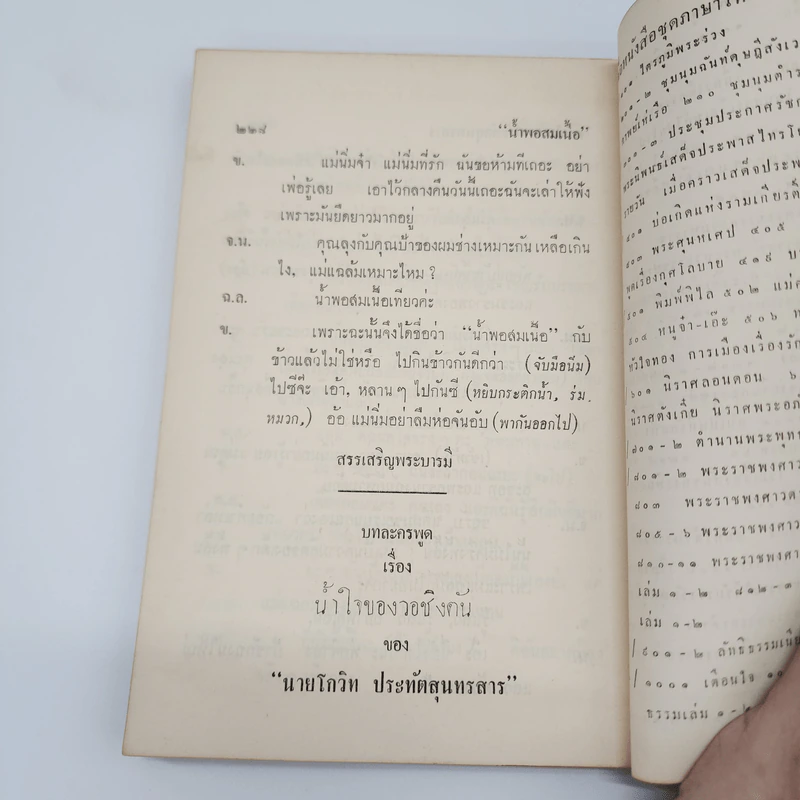 ๒๒๘ "น้ำพอสมเนื้อ"
ข. แม่นิ่มจ๋า แม่นิ่มที่รัก ฉันขอห้ามทีเถอะ อย่า
เพ่อรู้เลย เอาไว้กลางคืนวันนี้เถอะฉันจะเล่าให้ฟัง
เพราะมันยืดยาวมากอยู่
จ.น. คุณลุงกับคุณป้าของผมช่างเหมาะกันเหลือเกิน
ไง, แม่แฉล้มเหมาะไหม ?
ฉ.ล. น้ำพอสมเนื้อเทียวค่ะ
ข. เพราะฉะนั้นจึงได้ชื่อว่า "น้ำพอสมเนื้อ" กับ
ข้าวแล้วไม่ใช่หรือ ไปกินข้าวกันดีกว่า (จับมือนิ่ม)
ไปซีจ๊ะ เอ้า, หลาน ๆ ไปกันซี (หยิบกระติกน้ำ, ร่ม.
หมวก,) อ้อ แม่นิ่มอย่าลืมห่อจันอับ (พากันออกไป)
สรรเสริญพระบารมี
บทละครพูด
เรื่อง
น้ำใจของวอชิงตัน
ของ
"นายโกวิท ประทัตสุนทรสาร"
หนังสือชุดภาษาไท
ไตรภูมิพระร่วง
๑-๒ ชุมนุมฉันท์ดุษฎีสังเว
กาพย์เห่เรือ ๒๑๐ ชุมนุมตำร
-๓ ประชุมประกาศรัชก
พระนิพนธ์เสด็จประพาสไทรโย
เมื่อคราวเสด็จประพา
บ่อเกิดแห่งรามเกียรติ์
๔๐๓ พระศุนหเศป ๔๐๕
ชุดเรื่องกุศโลบาย ๔๑๙ บ
๕๐๑ พิมพ์พิไล ๕๐๒ แม่ศ
๕๐๔ หนูจ๋า-เอ๊ะ ๕๐๖ ห
หัวใจทอง การเมืองเรื่องรัก
/๖๐๑ นิราศลอนดอน ๖
นิราศตังเกี๋ย นิราศพระอภั
/๘๐๑-๒ ตำนานพระพุทธ
๘๐๑-๒ พระราชพงศาว
๘๐๓ พระราชพงศาวด
๘๐๕-๖ พระราชพงศาว
๘๑๐-๑๑ พระราชพงศา
เล่ม ๑-๒ ๘๑๒-๓
เล่ม ๑-๒
/๙๐๑-๒ ลัทธิธรรมเนีย
/๑๐๐๑ เตือนใจ ๑๐
ธรรมเล่ม ๑-๒